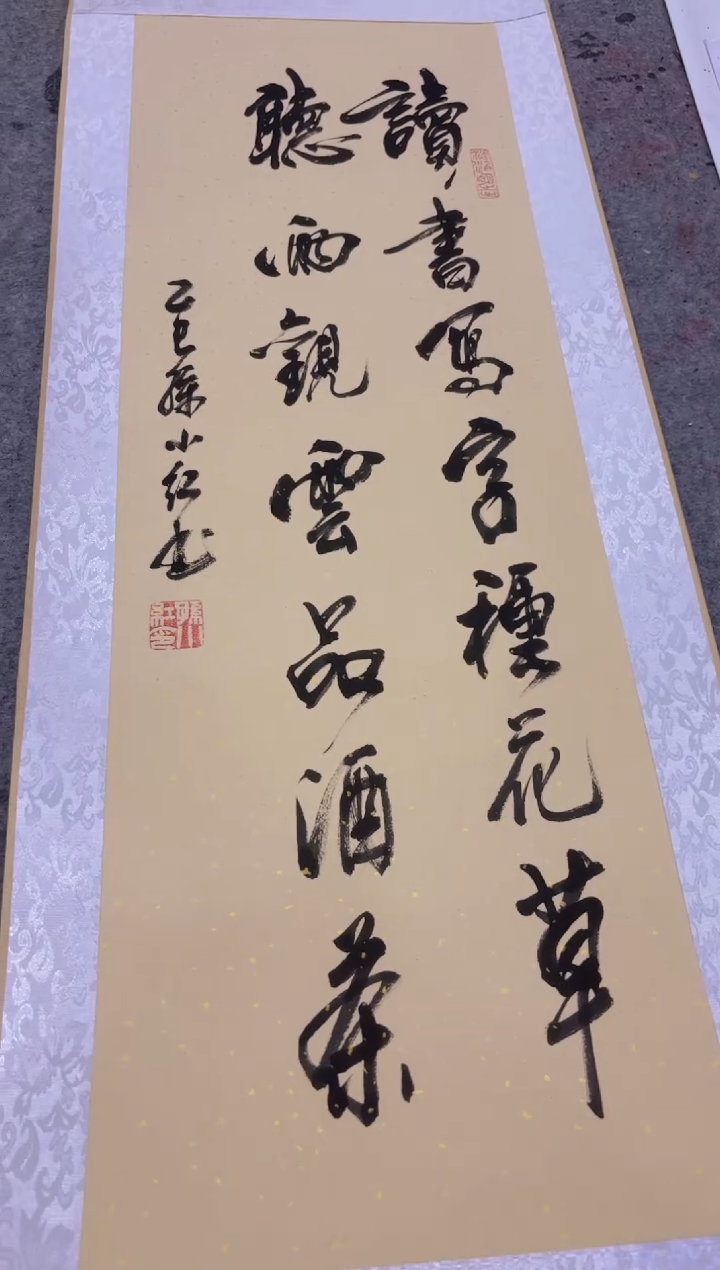 讀書寫字種花草
聽雨觀雲品酒茶
乙巳孫小紅書